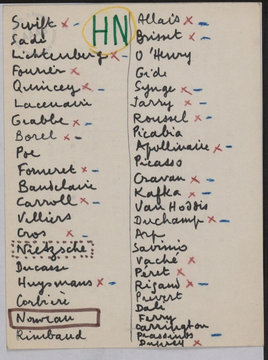 HN
Swift x -
Sade
Lichtenberg x -
Fourier x
Quincey x -
Lacenaire
Grabbe x -
Borel x -
Poe
Forneret x -
Baudelaire
Carroll x -
Villiers
Cros x -
Nietzsche
Ducasse
Huysmans x -
Corbière
Nouveau
Rimbaud
Allais x -
Brisset x -
O'Henry
Gide
Synge x -
Jarry x -
Roussel x -
Picabia
Apollinaire x -
Picasso
Cravan x -
Kafka x -
Van Hoddis
Duchamp x -
Arp
Savinio
Vaché x
Péret x
Rigaud x -
Prévert
Dali
Ferry
Carrington
Prassinos -
Duprey x